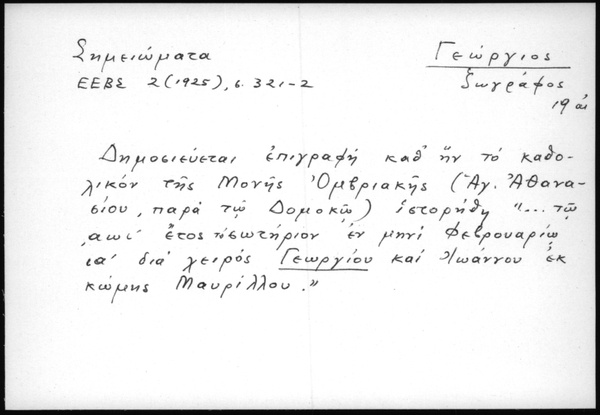 Σημειώματα
ΕΕΒΣ 2 (1925), σ. 321-2
Γεώργιος
ζωγράφος
19 αἰ
Δημοσιεύεται ἐπιγραφή καθ' ἥν τό καθο-
λικόν τῆς Μονῆς Ὀμβριακῆς (Ἁγ. Ἀθανα-
σίου, παρά τῷ Δομοκῷ) ἱστορήθη "... τῷ
,αωι' ἔτος τό σωτήριον ἐν μηνί Φεβρουαρίῳ
ια' διά χειρός Γεωργίου καί Ἰωάννου ἐκ
κώμης Μαυρίλλου."